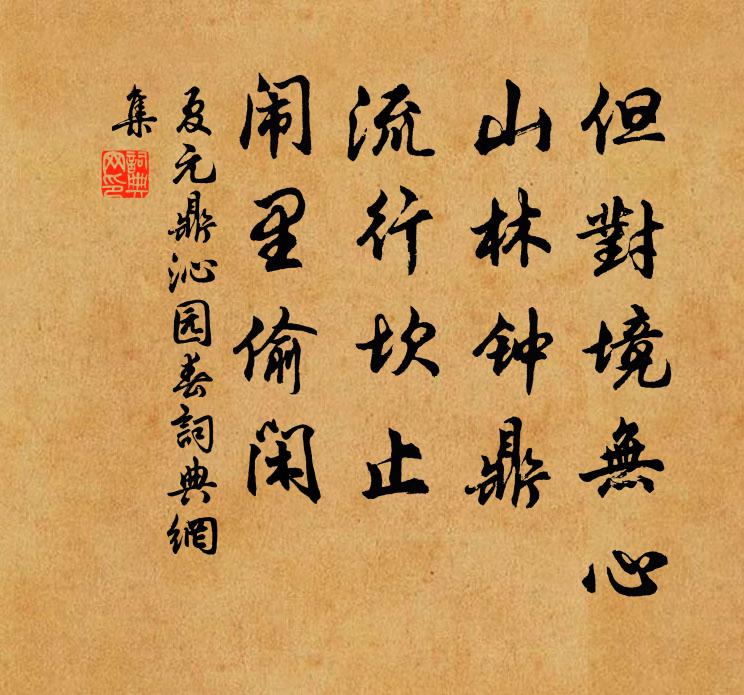 但對境無心
山林钟鼎
流行坎止
闹里偷闲
夏元鼎沁园春詞典網
集
詞典
网印